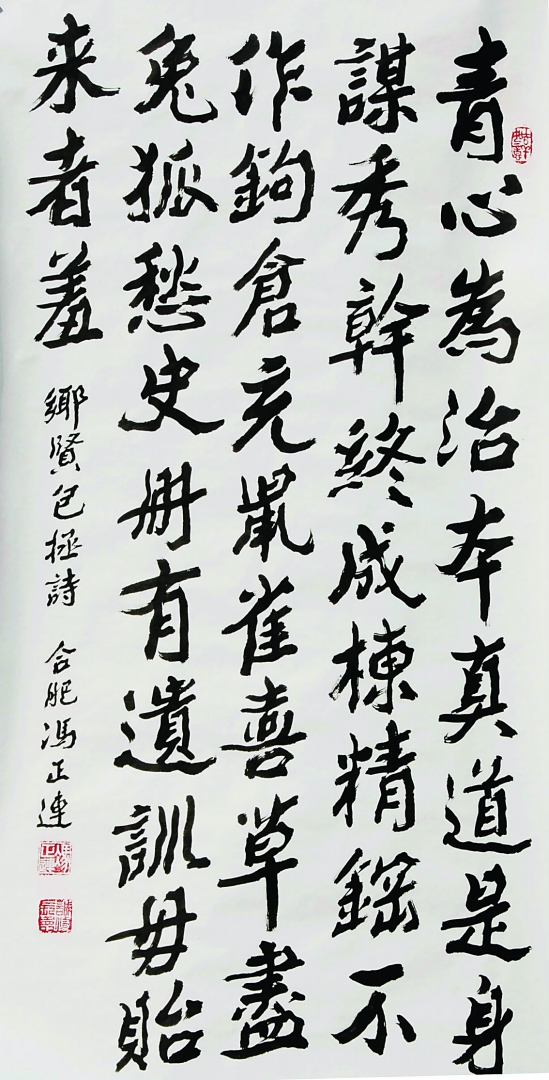 青心為治本真道是身
謀秀幹終成棟精鋼不
作鉤倉充鼠雀喜草盡
兔狐愁史册有遺訓毋貽
来者羞
鄉賢包拯詩 合肥馮正連